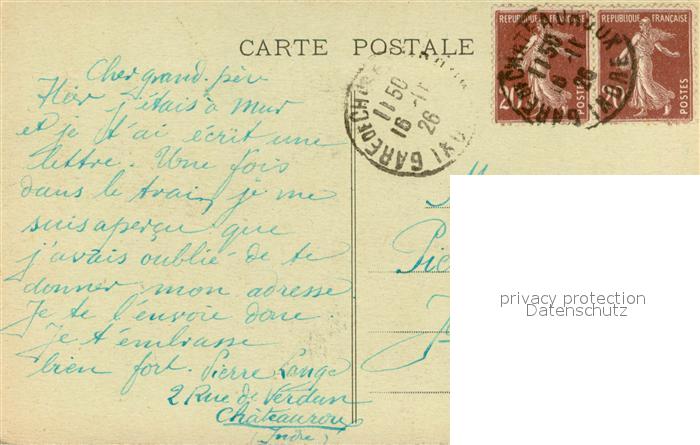 CARTE POSTALE
REPUBLIQUE FRANÇAISE
REPUBLIQUE FRANÇAISE
POSTES
POSTES
20
GARE DE CH
11 50
16 - 11
26
GARE DE CHATEAUROUX (INDRE)
11 50
16 - 11
26
Cher grand-père
Hier j'étais à Mur
et je t'ai écrit une
lettre. Une fois
dans le train je me
suis aperçu que
j'avais oublié de te
donner mon adresse
Je te l'envoie donc.
Je t'embrasse
bien fort. Pierre
2 Rue de Verdun
Châteauroux
(Indre)
M
Pie
privacy protection
Datenschutz